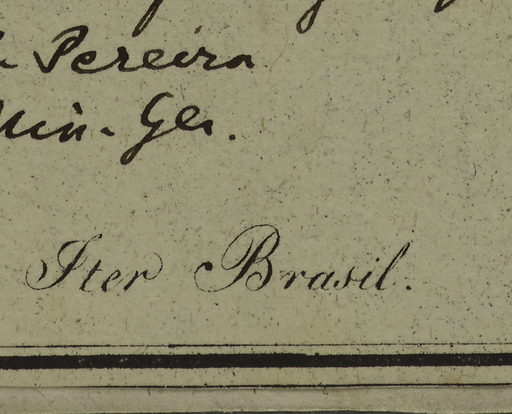 Pereira
Min. Ger.
Iter Brasil.